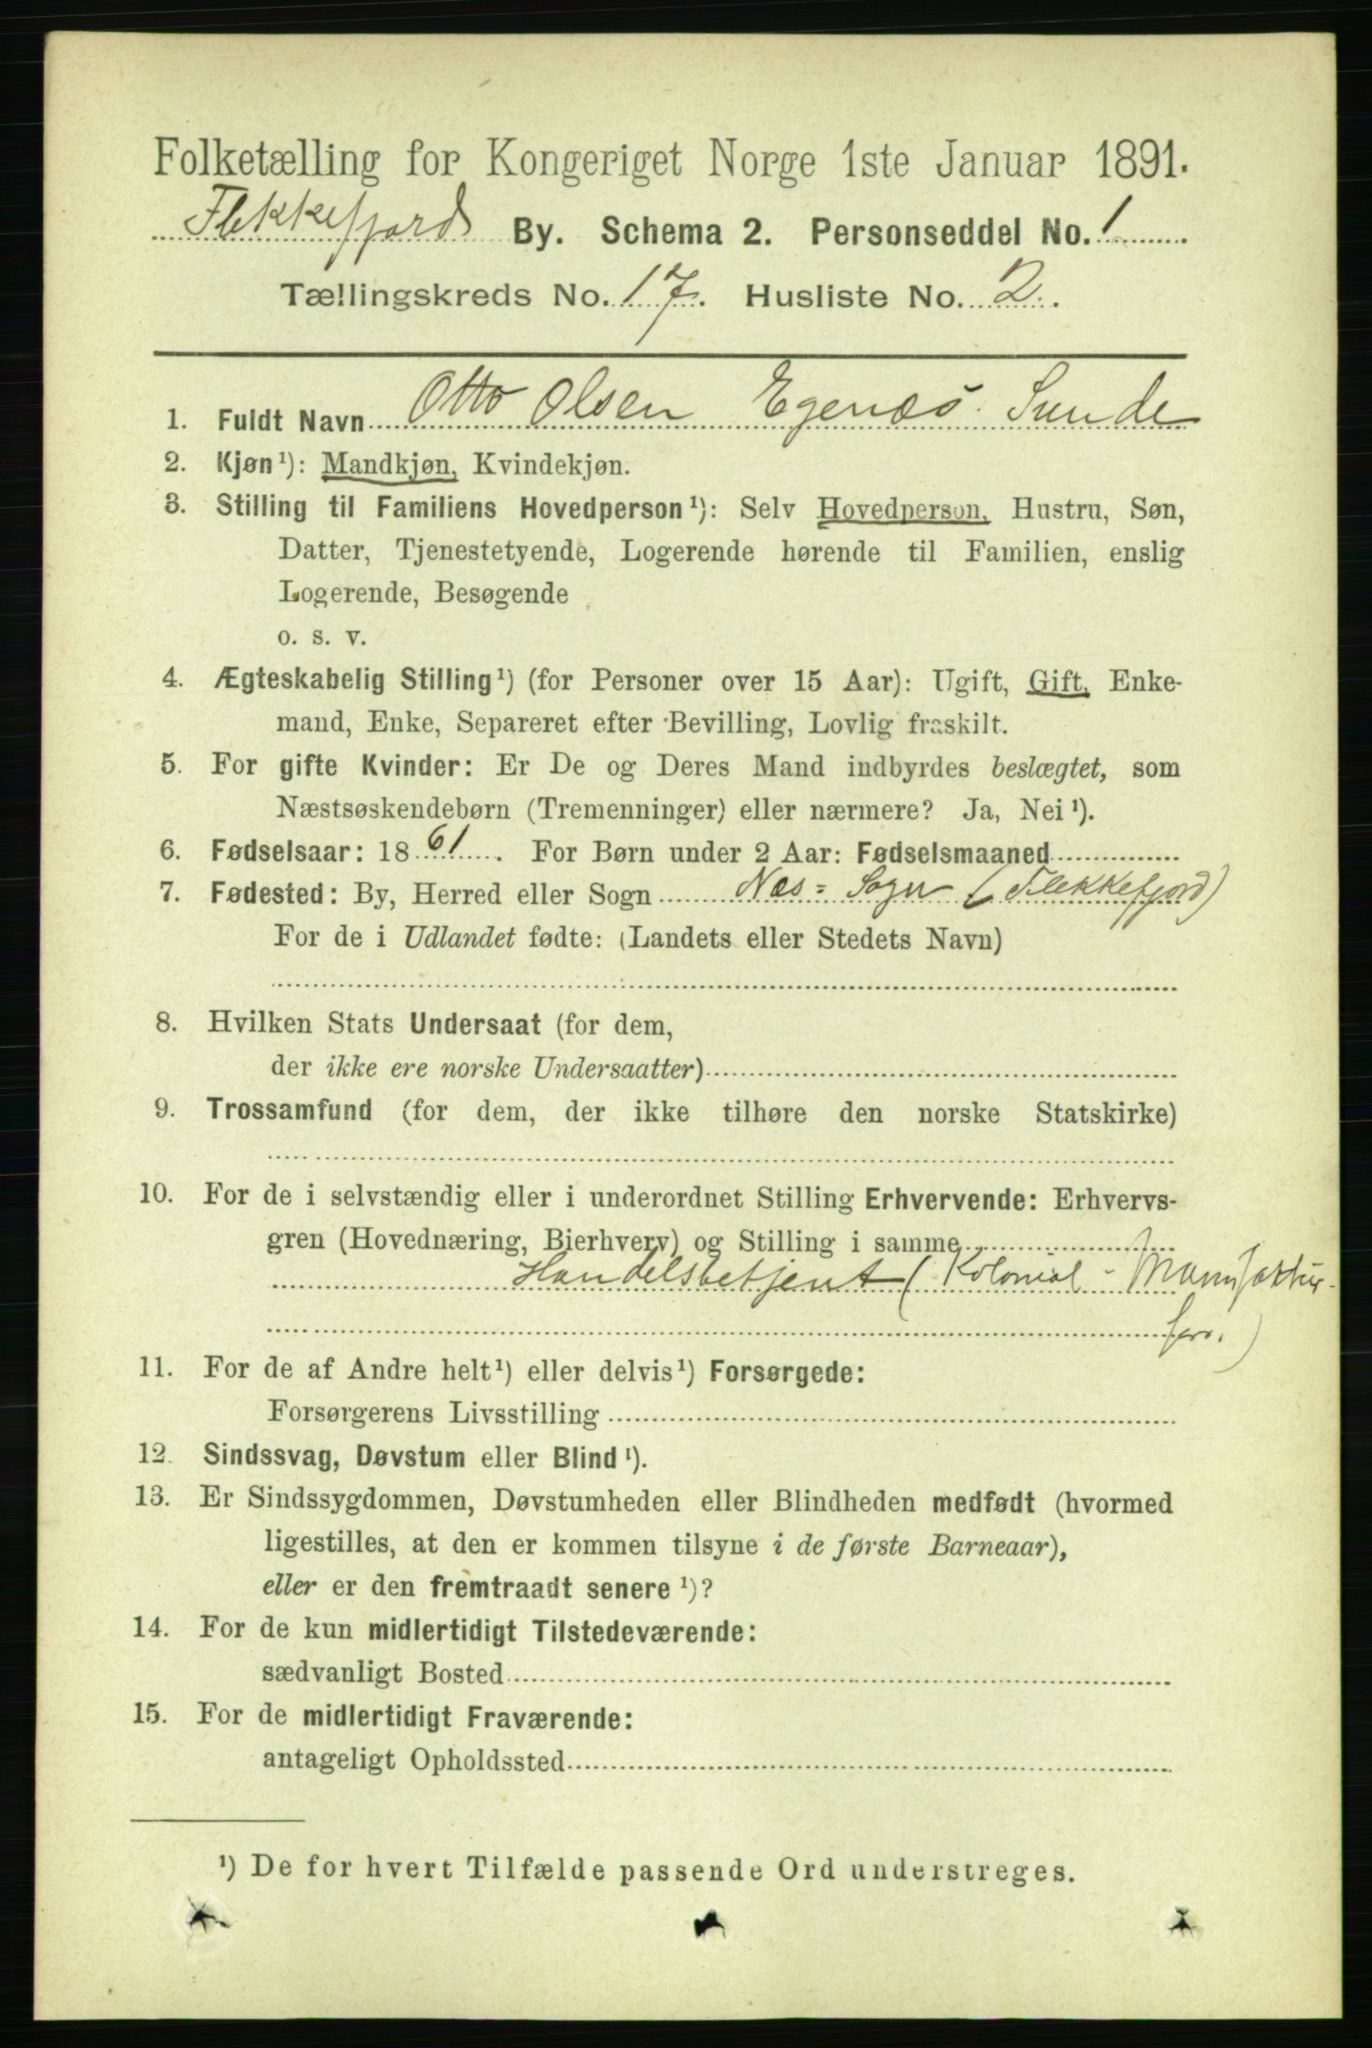 Folketælling for Kongeriget Norge 1ste Januar 1891.
Flekkefjords By. Schema 2. Personseddel No. 1
Tællingskreds No. 17. Husliste No. 2.
1. Fuldt Navn Otto Olsen Egenæs Sunde
2. Kjøn¹): Mandkjøn, Kvindekjøn.
3. Stilling til Familiens Hovedperson¹): Selv Hovedperson, Hustru, Søn,
Datter, Tjenestetyende, Logerende hørende til Familien, enslig
Logerende, Besøgende
o. s. v.
4. Ægteskabelig Stilling¹) (for Personer over 15 Aar): Ugift, Gift, Enke-
mand, Enke, Separeret efter Bevilling, Lovlig fraskilt.
5. For gifte Kvinder: Er De og Deres Mand indbyrdes beslægtet, som
Næstsøskendebørn (Tremenninger) eller nærmere? Ja, Nei¹).
6. Fødselsaar: 1861. For Børn under 2 Aar: Fødselsmaaned
7. Fødested: By, Herred eller Sogn Næs=Sogn (Flekkefjord)
For de i Udlandet fødte: (Landets eller Stedets Navn)
8. Hvilken Stats Undersaat (for dem,
der ikke ere norske Undersaatter)
9. Trossamfund (for dem, der ikke tilhøre den norske Statskirke)
10. For de i selvstændig eller i underordnet Stilling Erhvervende: Erhvervs-
gren (Hovednæring, Bierhverv) og Stilling i samme
Handelsbetjent (Kolonial - Manufaktur-
forr.)
11. For de af Andre helt¹) eller delvis¹) Forsørgede:
Forsørgerens Livsstilling
12. Sindssvag, Døvstum eller Blind¹).
13. Er Sindssygdommen, Døvstumheden eller Blindheden medfødt (hvormed
ligestilles, at den er kommen tilsyne i de første Barneaar),
eller er den fremtraadt senere¹)?
14. For de kun midlertidigt Tilstedeværende:
sædvanligt Bosted
15. For de midlertidigt Fraværende:
antageligt Opholdssted
¹) De for hvert Tilfælde passende Ord understreges.